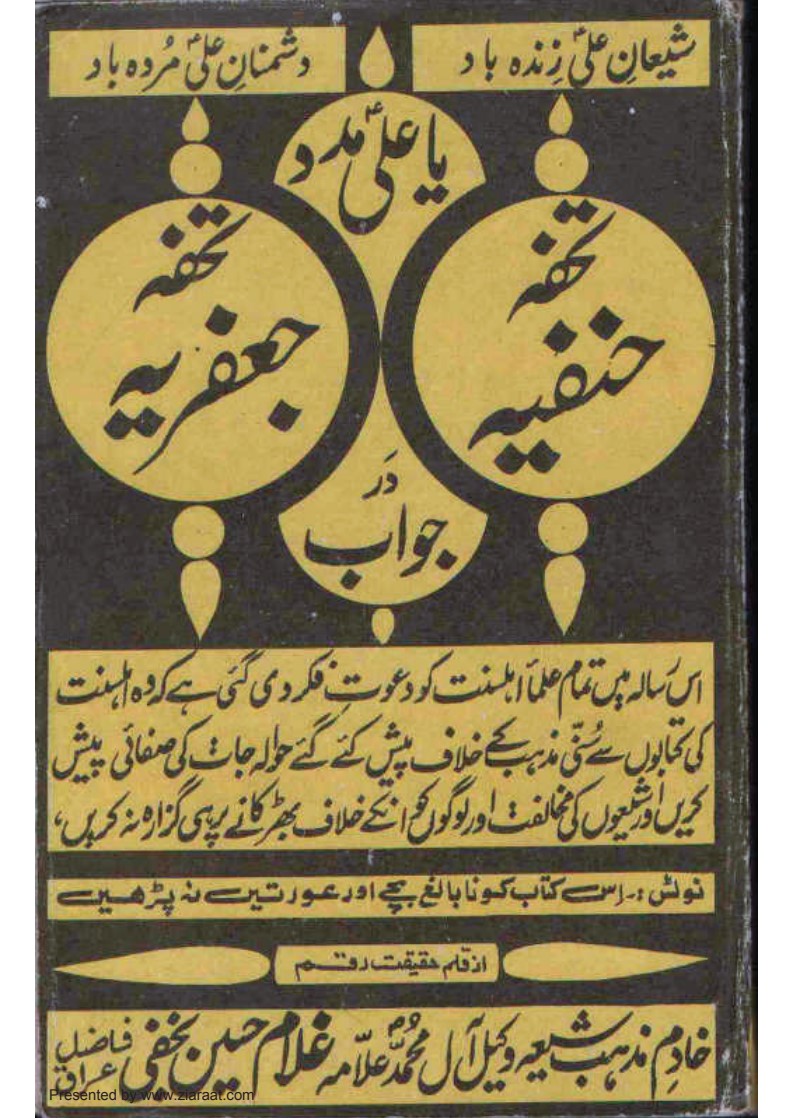 شیعانِ علیؑ زِندہ باد
دشمنانِ علیؑ مُردہ باد
یا علیؑ مدد
تحفہ
حنفیہ
دَر
جواب
تحفہ
جعفریہ
اس رسالہ میں تمام علمأ اہلسنت کو دعوتِ فکر دی گئی ہے کہ وہ اہلسنت
کی کتابوں سے سُنّی مذہب کے خلاف پیش کئے گئے حوالہ جات کی صفائی پیش
کریں اور شیعوں کی مخالفت اور لوگوں کو انکے خلاف بھڑکانے پر ہی گزارہ نہ کریں،
نوٹس :۔ اِس کتاب کو نابالغ بچے اور عورتیں نہ پڑھیں
از قلم حقیقت رقم
خادِم مذہب شیعہ وکیل آلِ محمدؐ علّامہ غلام حسین نجفی فاضلِ عراق
Presented by www.ziaraat.com